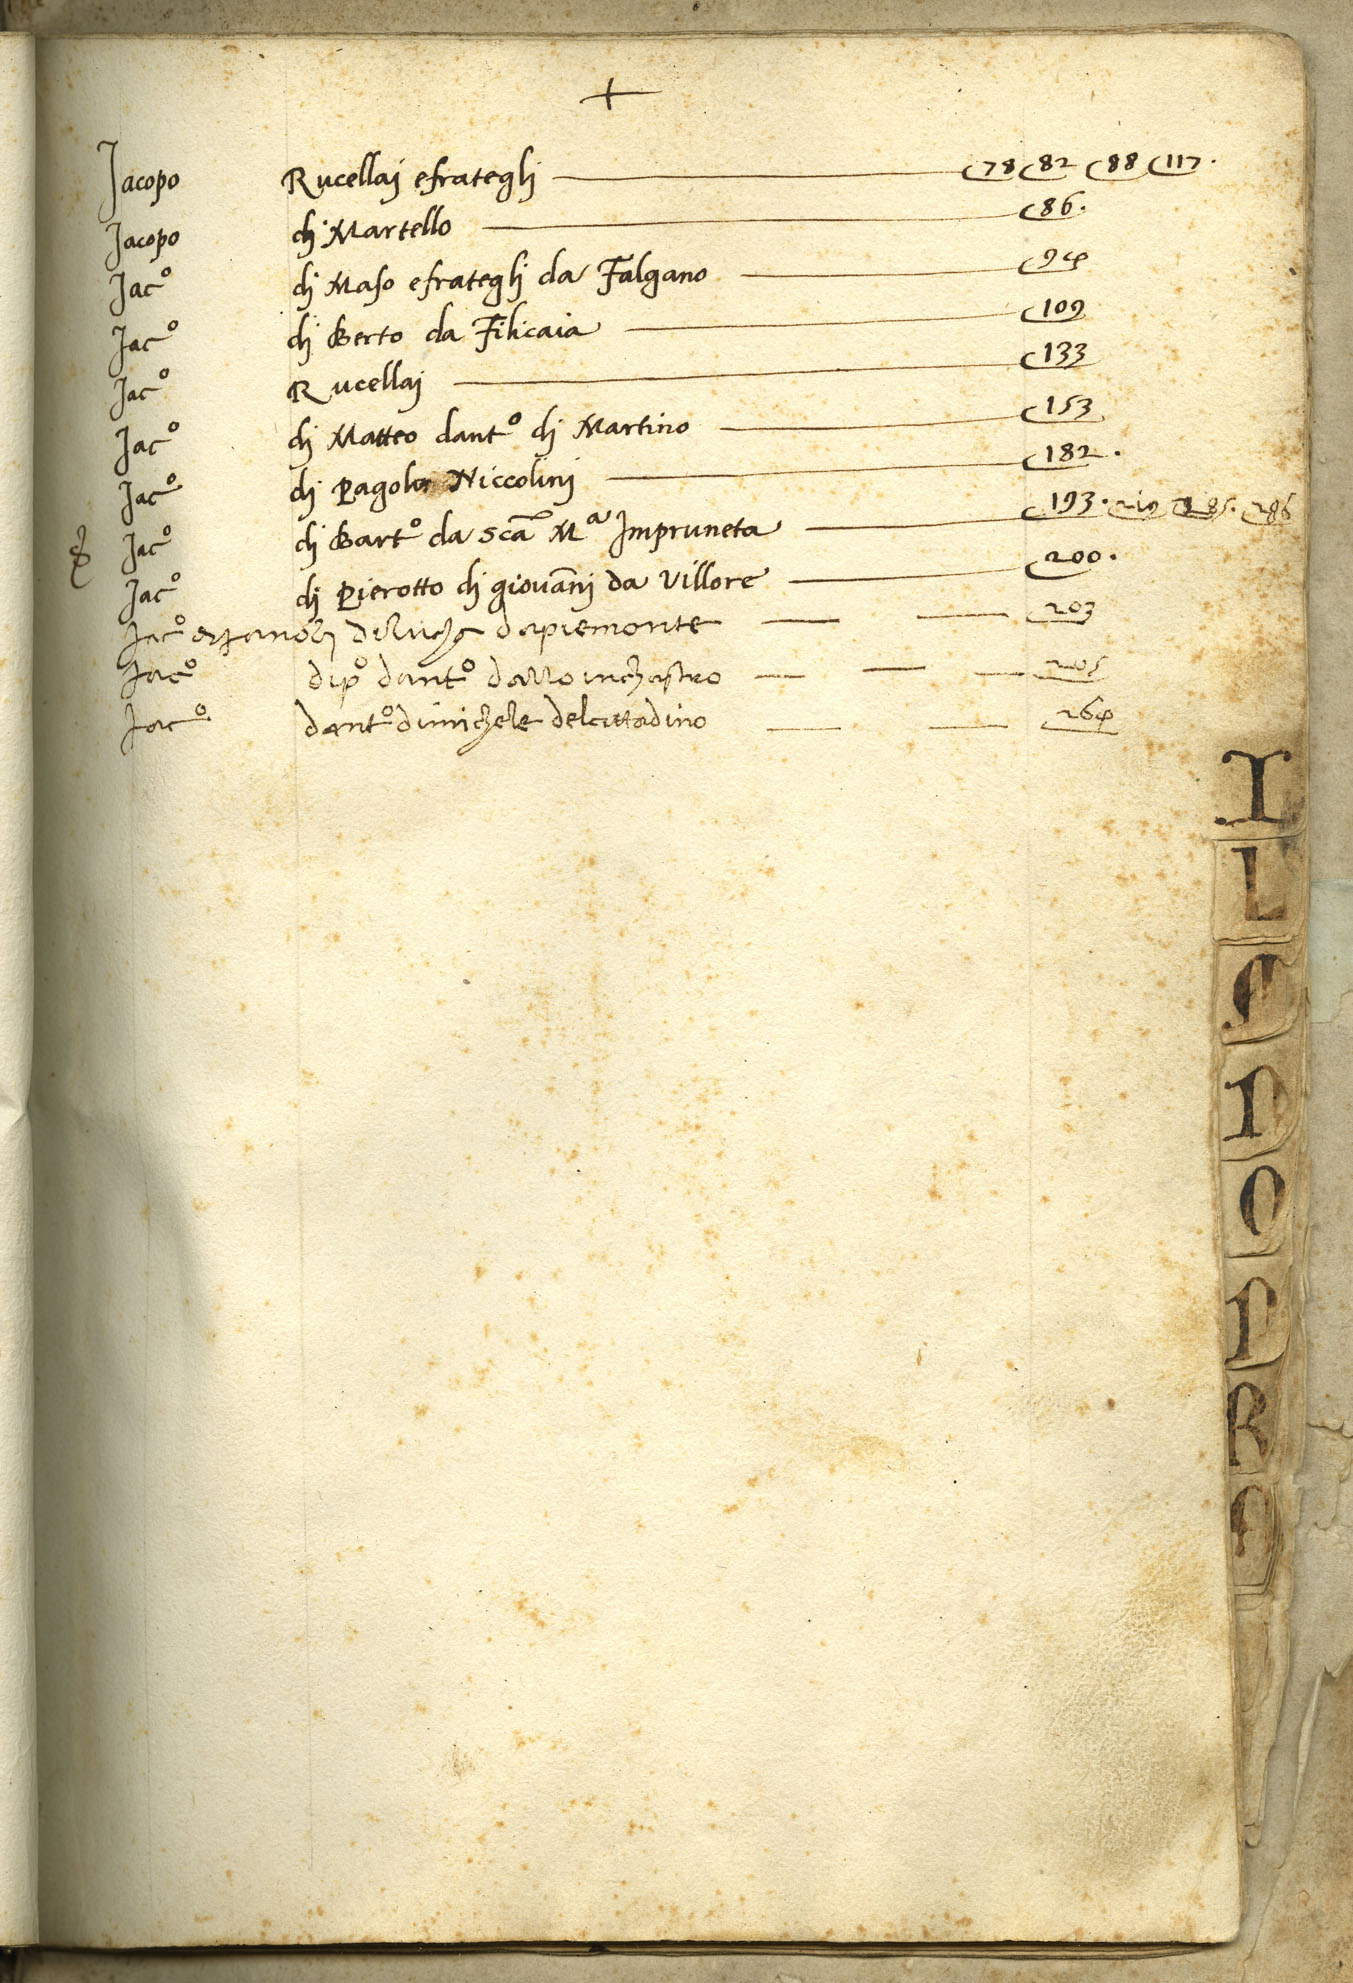 +
Jacopo Rucellaj efrateglj 78 82 88 117.
Jacopo dj Martello 86.
Jac° dj Maso efrateglj da Falgano 94
Jac° dj Berto da Filicaia 109
Jac° Rucellaj 133
Jac° dj Matteo dant° dj Martino 153
Jac° dj Pagolo Niccolinj 182.
Jac° dj Bart° da scā Mª Impruneta 193. 219 285. 286
Jac° dj Pierotto dj giovānj da Villore 200.
Jac° ezanobj dilucha dapiemonte 203
Jac° dip° dant° 205
Jac° dant° dimichele delcittadino 264
I
L
N
O
P
R